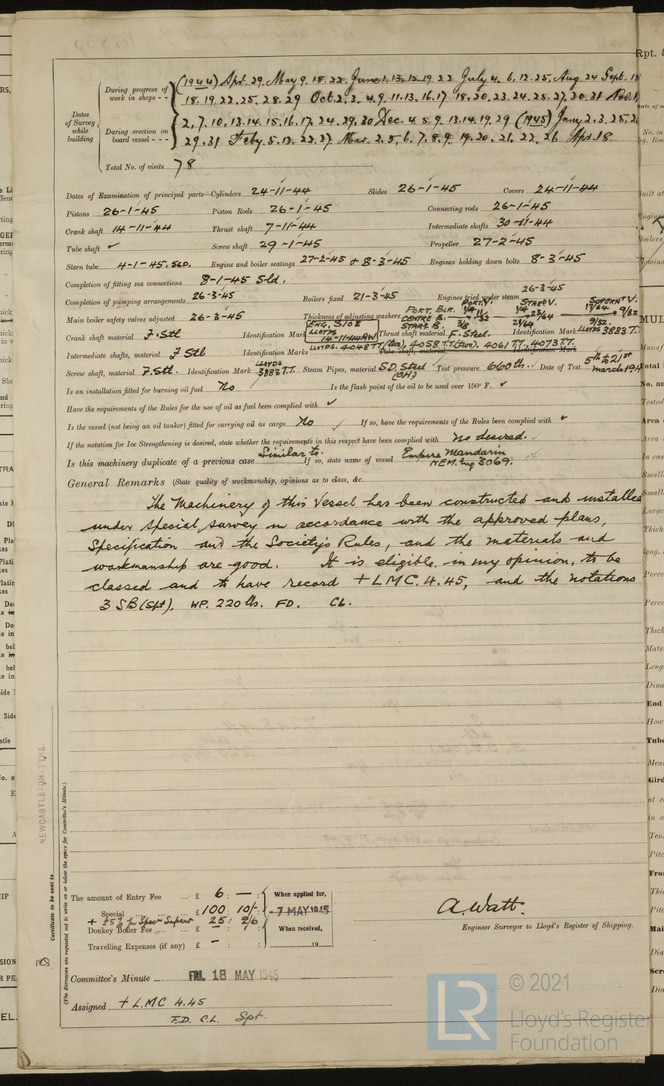 Rpt. 5
Dates
of Survey
while
building
During progress of
work in shops - -
(1944) Apr. 29. May 9. 18. 22. June 1. 13. 15. 19. 23 July 4. 6. 12. 25. Aug 24 Sept. 18
18. 19. 22. 25. 28. 29 Oct. 2. 3. 4. 9. 11. 13. 16. 17 18. 20. 23. 24. 25. 27. 30. 31 Nov. 1
During erection on
board vessel - - -
2, 7. 10. 13. 14. 15. 16. 17. 24. 29. 30 Dec. 4. 5. 9. 13. 14. 19. 29 (1945) Jany. 2. 3. 25. 2
29. 31 Feby. 5. 12. 22. 27. Mar. 2. 5. 6. 7. 8. 9. 19. 20. 21. 22. 26 Apr. 18
Total No. of visits 78
Dates of Examination of principal parts—Cylinders 24-11-44 Slides 26-1-45 Covers 24-11-44
Pistons 26-1-45 Piston Rods 26-1-45 Connecting rods 26-1-45
Crank shaft 14-11-44 Thrust shaft 7-11-44 Intermediate shafts 30-11-44
Tube shaft ✓ Screw shaft 29-1-45 Propeller 27-2-45
Stern tube 4-1-45. SLD. Engine and boiler seatings 27-2-45 + 8-3-45 Engines holding down bolts 8-3-45
Completion of fitting sea connections 8-1-45 Sld.
Completion of pumping arrangements 26-3-45 Boilers fixed 21-3-45 Engines tried under steam 26-3-45
Main boiler safety valves adjusted 26-3-45 Thickness of adjusting washers PORT. BLR. CENTRE B. STARB B. PORT. V. 1/4 3/8 STAR V. 1/4 23/64 21/64 SUPERHT V. 17/64 9/32 9/32
Crank shaft material F. Stl Identification Mark ENG. 3108 LLOYDS 14-11-44 RW Thrust shaft material F. Steel. Identification Mark LLOYDS 3883 T.T.
Intermediate shafts, material F Stl Identification Marks LLOYDS. 4048 TT (two), 4058 TT (two), 4061 TT., 4073 TT. Tube shaft, material Identification Mark
Screw shaft, material F. Stl. Identification Mark LLOYDS 3883 T.T. Steam Pipes, material SD. Steel (OH) Test pressure 660 lbs. Date of Test 5th & 21st March 194
Is an installation fitted for burning oil fuel No Is the flash point of the oil to be used over 150° F. ✓
Have the requirements of the Rules for the use of oil as fuel been complied with ✓
Is the vessel (not being an oil tanker) fitted for carrying oil as cargo No ✓ If so, have the requirements of the Rules been complied with ✓
If the notation for Ice Strengthening is desired, state whether the requirements in this respect have been complied with No desired.
Is this machinery duplicate of a previous case Similar to. If so, state name of vessel Empire Mandarin NEM. Eng 3069.
General Remarks (State quality of workmanship, opinions as to class, &c.
The Machinery of this Vessel has been constructed and installed
under special survey in accordance with the approved plans,
Specification and the Society's Rules, and the materials and
workmanship are good. It is eligible, in my opinion, to be
classed and to have record + LMC. 4.45, and the notations
3 SB (Spt). WP. 220 lbs. FD. CL.
NEWCASTLE-ON-TYNE
Certificate to be sent to
(The Surveyors are requested not to write on or below the space for Committee's Minute.)
The amount of Entry Fee ... £ 6 : — :
Special ... £ 100 : 10/- :
+ 25% for Spec'n Superv £ 25 : 2/6
Donkey Boiler Fee ... £ — : :
Travelling Expenses (if any) £ — : :
When applied for,
- 7 MAY 1945
When received,
19
A. Watt.
Engineer Surveyor to Lloyd's Register of Shipping.
Committee's Minute FRI. 18 MAY 1945
Assigned + LMC 4.45
F.D. C.L. Spt.
LR
© 2021
Lloyd's Register
Foundation